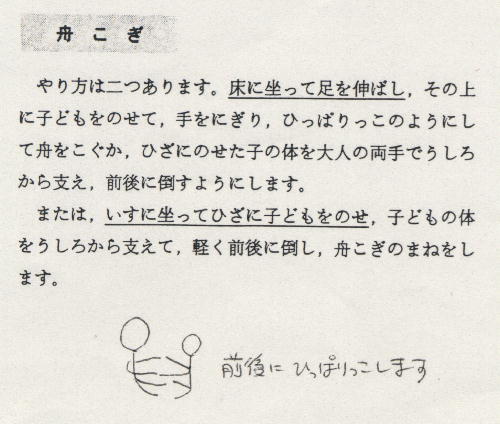 舟こぎ
やり方は二つあります。床に坐って足を伸ばし，その上
に子どもをのせて，手をにぎり，ひっぱりっこのようにし
て舟をこぐか，ひざにのせた子の体を大人の両手でうしろ
から支え，前後に倒すようにします。
または，いすに坐ってひざに子どもをのせ，子どもの体
をうしろから支えて，軽く前後に倒し，舟こぎのまねをし
ます。
前後に ひっぱりっこします